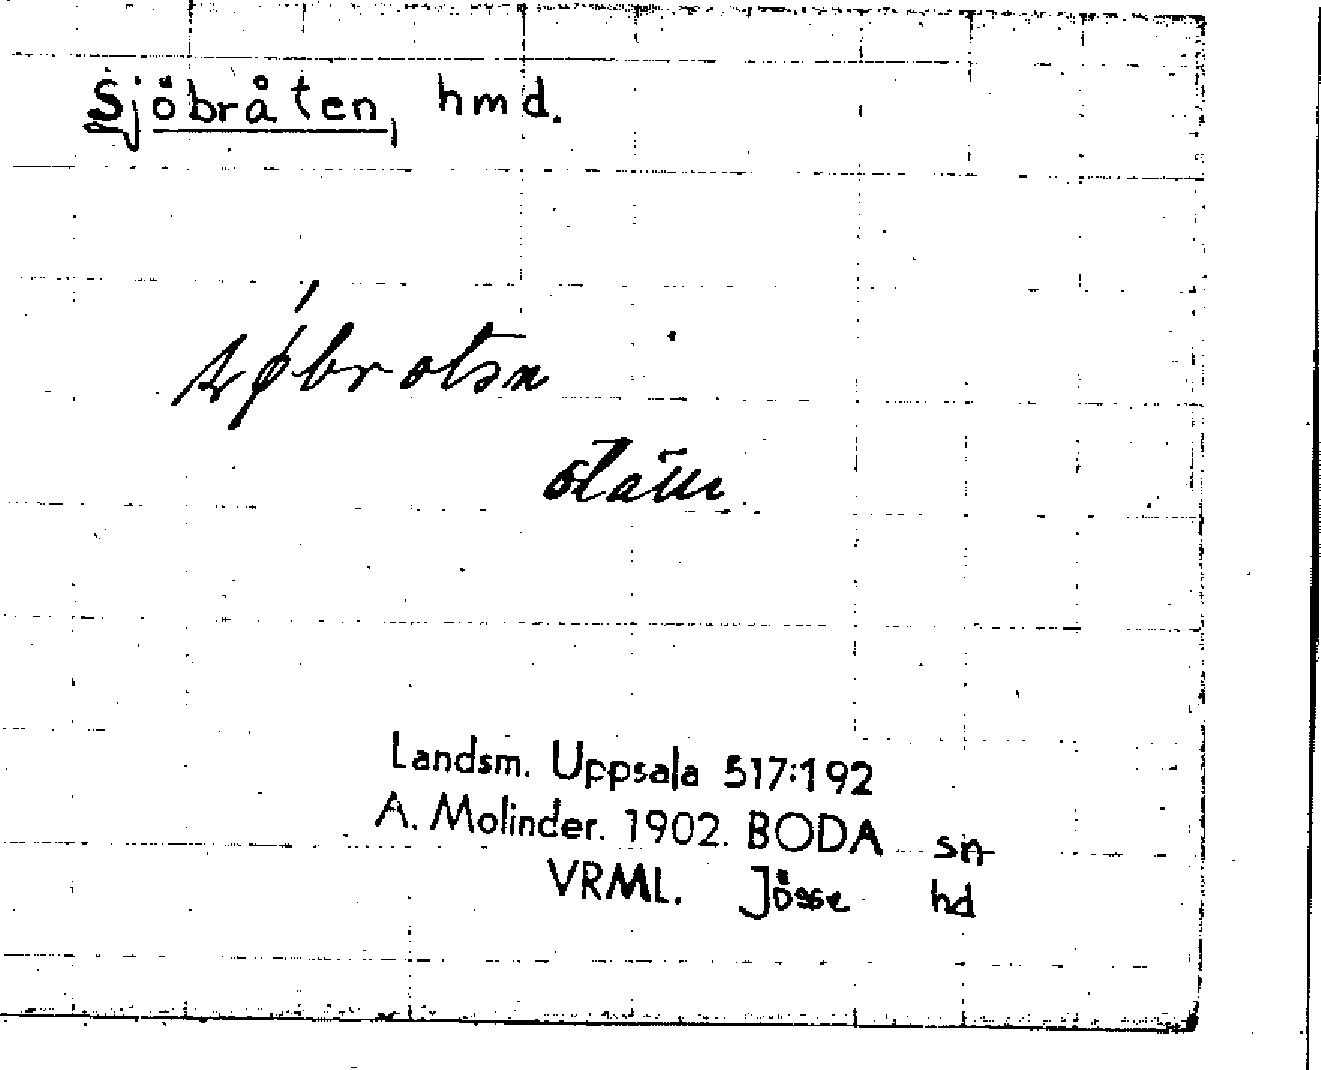 Sjöbråten, hmd.
Landsm. Uppsala 517:192
A. Molinder. 1902. BODA sn
VRML. Jösse hd